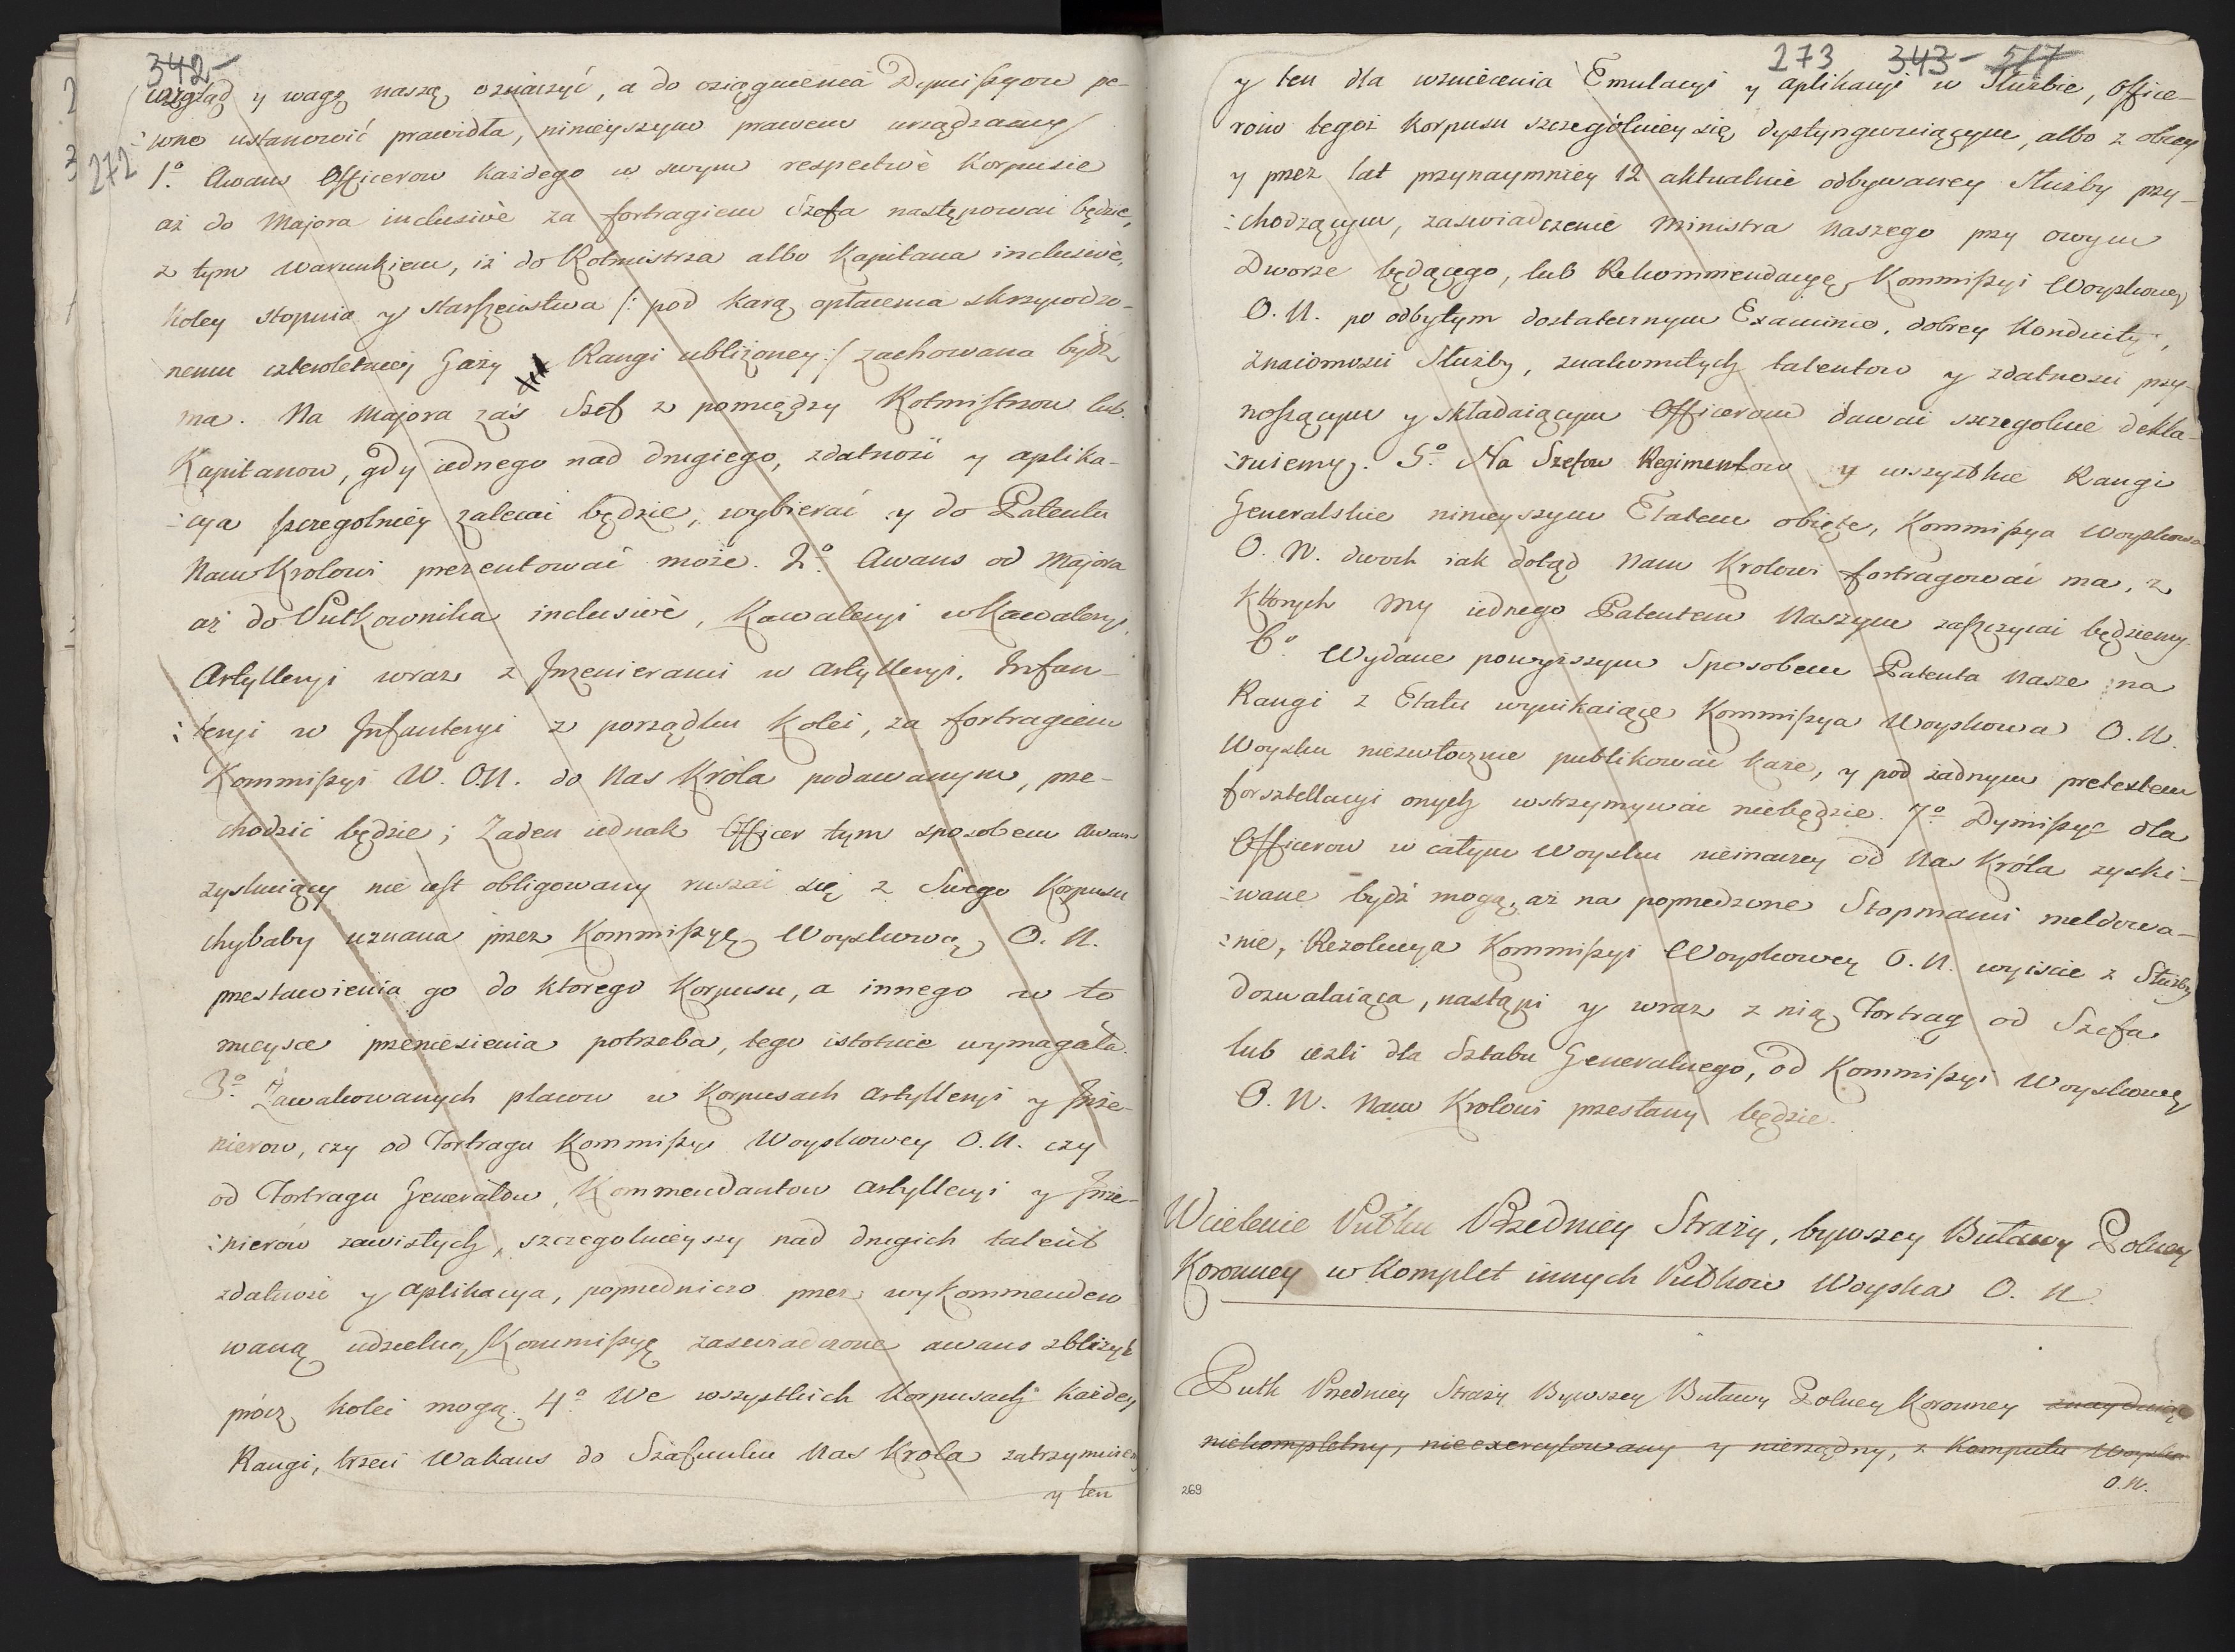 342
wzgląd y wagę naszą oznaczyć, a do osiągnienia Dymissyow pe-
:wne ustanowić prawidła, ninieyszym prawem urządzamy
272
1.o Awans Officerow każdego w swym respectivè Korpusie
aż do Majora inclusivè za fortragiem Szefa następować będzie,
z tym warunkiem, iż do Rotmistrza albo Kapitana inclusivè,
koley stopnia y starszeństwa /: pod karą opłacenia skrzywdzo-
nemu czteroletniey Gaży Rangi ubliżoney :/ zachowana bydź
ma. Na Majora zaś Szef z pomiędzy Rotmistrzow lub
Kapitanow, gdy iednego nad drugiego, zdatność y aplika-
:cya szczegolniey zalecać będzie, wybierać y do Patentu
Nam Krolowi prezentować może. 2.o Awans od Majora
aż do Pułkownika inclusivè, Kawaleryi w Kawaleryi,
Artylleryi wraz z Inżenierami w Artylleryi, Infan-
:teryi w Infanteryi z porządku kolei, za fortragiem
Kommissyi W. O.N. do Nas Króla podawanym, prze-
chodzić będzie; Żaden iednak Officer tym sposobem Awans
zyskuiący nie iest obligowany ruszać się z Swego Korpusu
chybaby uznana przez Kommissyę Woyskową O. N.
przestawienia go do ktorego Korpusu, a innego w to
mieysce przeniesienia potrzeba, tego istotnie wymagała.
3.o Zawakowanych placow w Korpusach Artylleryi y Inże-
nierow, czy od Fortragu Kommissyi Woyskowey O. N. czy
od Fortragu Generałow, Kommendantow Artylleryi y Inże-
:nierów zawisłych, szczegolnieyszy nad drugich talent
zdatność y Aplikacya, poprzedniczo przez wykommendero
waną udzielną Kommissyę zaswiadczone awans zbliżyć
prócz kolei mogą. 4.o We wszystkich Korpusach każdey
Rangi, trzeci Wakans do Szafunku Nas Krola zatrzymuiemy
y ten
273 343 517
y ten dla wzniecenia Emulacyi y aplikacyi w Służbie, Office-
rów tegoż Korpusu szczególniey się dystyngwuiącym, albo z obcey
y przez lat przynaymniey 12 aktualnie odbywaney Służby przy-
:chodzącym, zaswiadczenie Ministra Naszego przy owym
Dworze będącego, lub Rekommendacyę Kommissyi Woyskowey
O. N. po odbytym dostatecznym Examinie, dobrey Konduity,
znaiomości Służby, znakomitych talentow y zdatności przy-
noszącym y składaiącym Officerom dawać szczegolnie dekla-
:ruiemy. 5.o Na Szefow Regimentow y wszystkie Rangi
Generalskie ninieyszym Etatem obięte, Kommissya Woyskowa
O. N. dwoch iak dotąd Nam Krolowi fortragować ma, z
ktorych My iednego Patentem Naszym zaszczycać będziemy.
6.o Wydane powyższym Sposobem Patenta Nasze na
Rangi z Etatu wynikaiące Kommissya Woyskowa O. N.
Woysku niezwłocznie publikować każe, y pod żadnym pretextem
forsztellacyi onych wstrzymywać niebędzie. 7.o Dymissye dla
Officerow w całym Woysku nieinaczey od Nas Króla zyski-
:wane bydź mogą, aż na poprzedzone Stopniami meldowa-
:nie, Rezolucya Kommissyi Woyskowey O. N. wyiscie z Służby
dozwalaiąca, nastąpi y wraz z nią Fortrag od Szefa
lub ieźli dla Sztabu Generalnego, od Kommissyi Woyskowey
O. N. Nam Krolowi przesłany będzie.
Wcielenie Pułku Przedniey Straży, bywszey Buławy Polney
Koronney w komplet innych Pułkow Woyska O. N.
Pułk Przedniey Straży Bywszey Buławy Polney Koronney znayduiąc
niekompletny, nieexercytowany y nierządny, z Komputu Woyska
O. N.
269